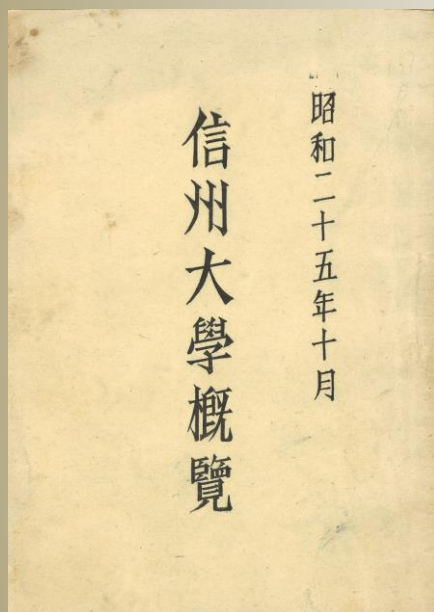 昭和二十五年十月
信州大學概覽